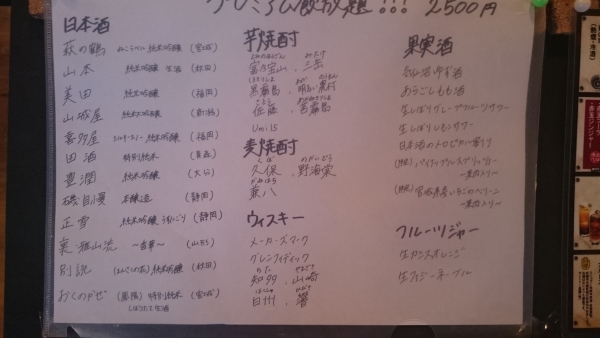 プレミアム飲放題!!! 2500円
日本酒
萩の鶴 純米吟醸 (宮城)
山本 純米吟醸 生酒 (秋田)
美田 純米吟醸 (福岡)
山城屋 純米吟醸 (新潟)
喜多屋 純米吟醸 (福岡)
田酒 特別純米 (青森)
豊潤 純米吟醸 (大分)
磯自慢 本醸造 (静岡)
正雪 純米吟醸 (静岡)
裏・雅山流 ~香華~ (山形)
別誂 純米吟醸 (秋田)
おくのかぜ 特別純米 (宮城)
しぼりたて生酒
芋焼酎
富乃宝山、三岳
黒霧島、明るい農村
佐藤、宮霧島
Umi15
麦焼酎
久保、野海棠
兼八
ウィスキー
メーカーズマーク
グレンフィディック
知多、山崎
白州、響
果実酒
ゆず酒
あらごしもも酒
生しぼりグレープフルーツサワー
生しぼりレモンサワー
日本酒のトロピカル割り
~果肉入り~
宮城県産いちごの
~果肉入り~
フルーツジャー
生カシスオレンジ
生ファジーネーブル